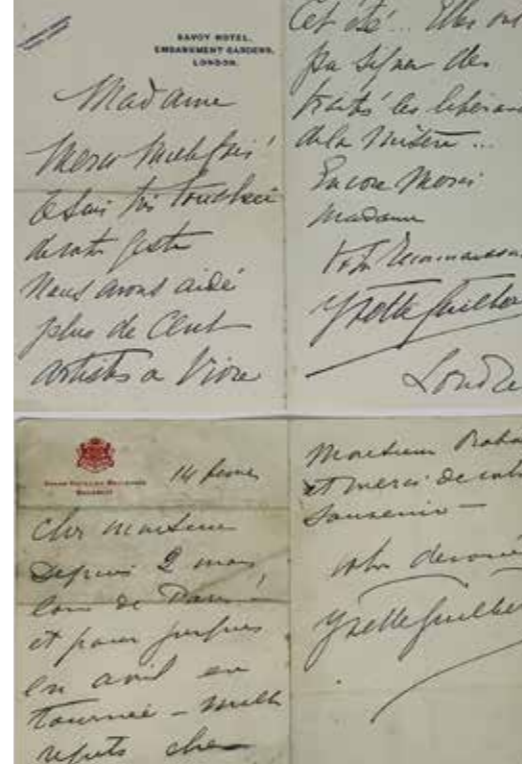 SAVOY HOTEL,
EMBANKMENT GARDENS,
LONDON.
Madame
Merci mille fois!
Je suis très touchée
de votre geste
Nous avons aidé
plus de Cent
artistes a Vivre
Cet été... Elles ont
pu signer des
traités les libérant
de la misère...
Encore Merci
Madame
Votre reconnaissante
Yvette Guilbert
Londres
14 fevrier
Cher monsieur
Depuis 2 mois
loin de Paris!
et pour jusques
en avril en
tournée – mille
regrets cher
Monsieur
et merci de votre
Souvenir –
votre devouée
Yvette Guilbert